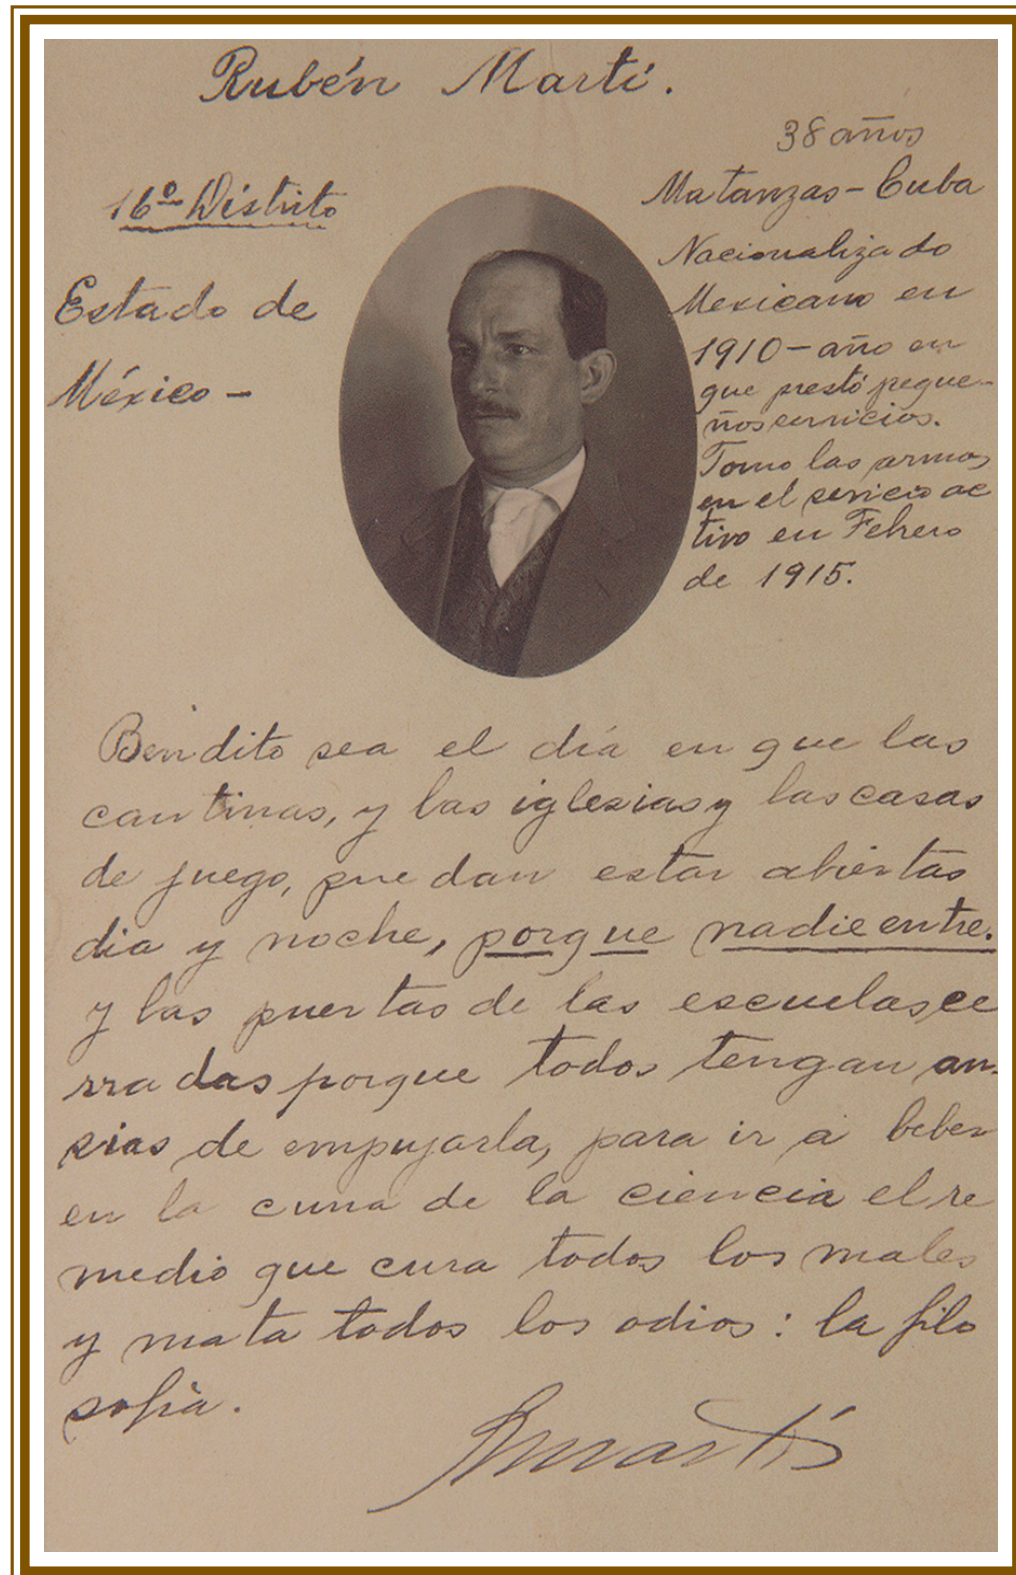 Rubén Martí.
16º Distrito
Estado de
México -
38 años
Matanzas - Cuba
Nacionalizado
Mexicano en
1910 - año en
que prestó peque-
ños servicios.
Tomo las armas
en el servicio ac
tivo en Febrero
de 1915.
Bendito sea el día en que las
cantinas, y las iglesias y las casas
de juego, puedan estar abiertas
dia y noche, porque nadie entre.
y las puertas de las escuelas ce
rradas porque todos tengan an-
sias de empujarla, para ir a beber
en la cuna de la ciencia el re
medio que cura todos los males
y mata todos los odios: la filo
sofia.
RMartí